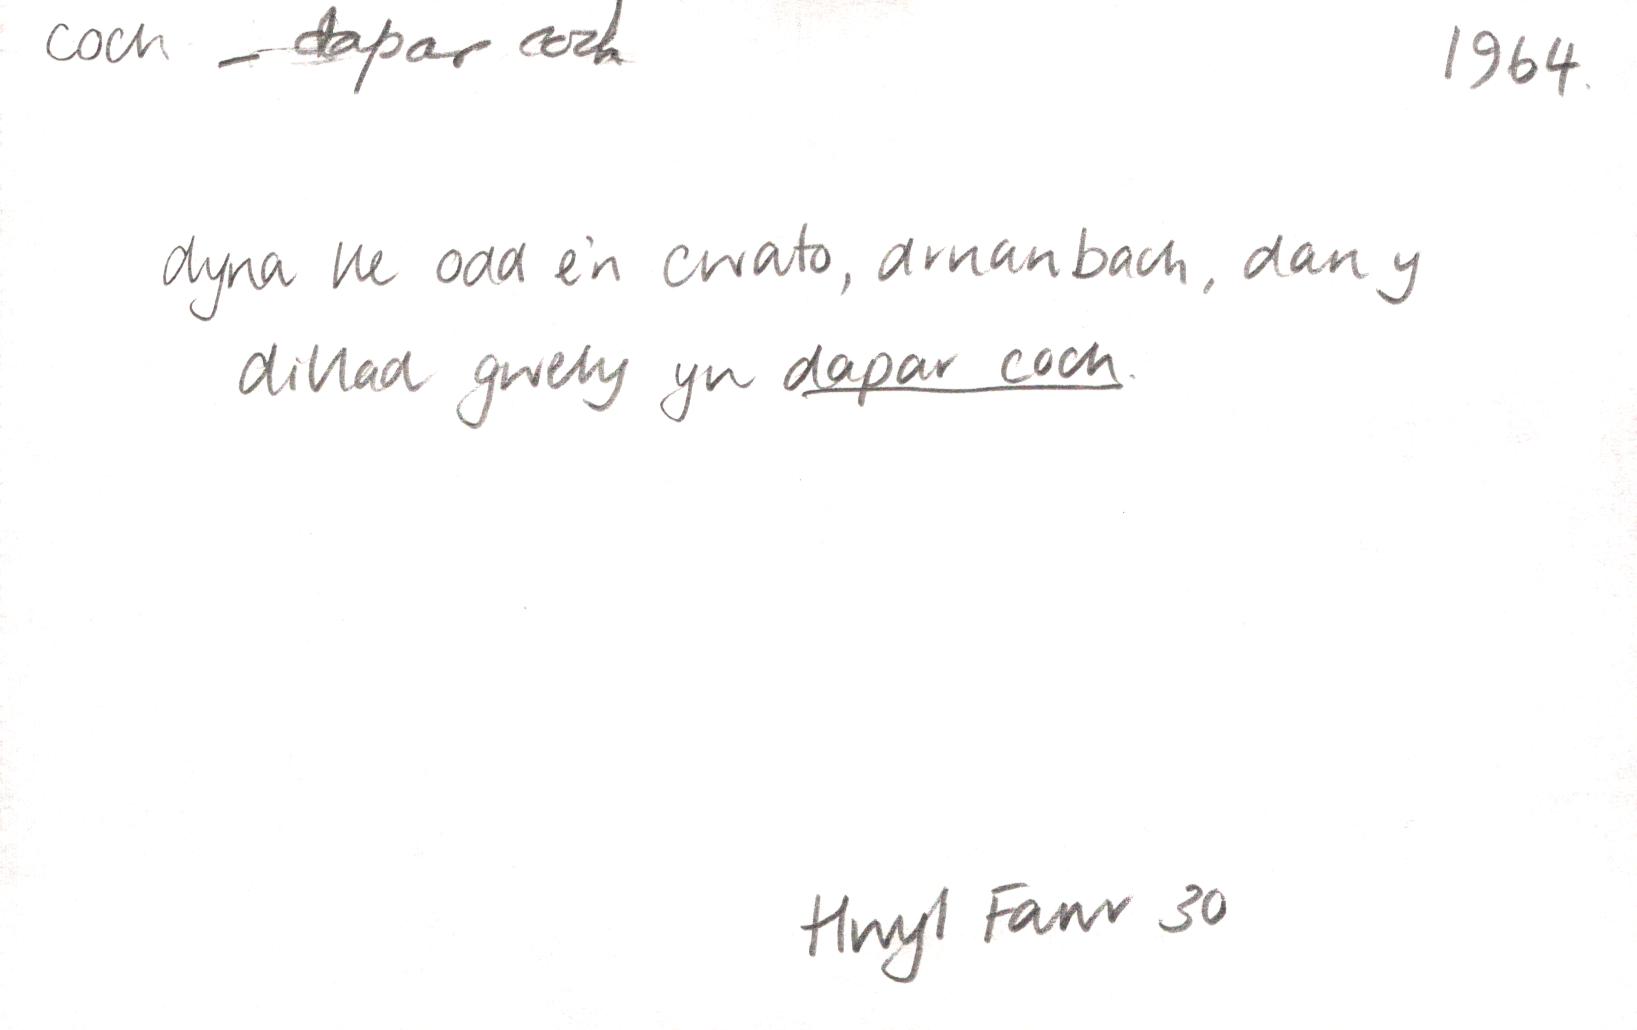 coch – dapar coch 1964.
dyna lle odd e'n cwato, druan bach, dan y
dillad gwely yn dapar coch.
Hwyl Fawr 30